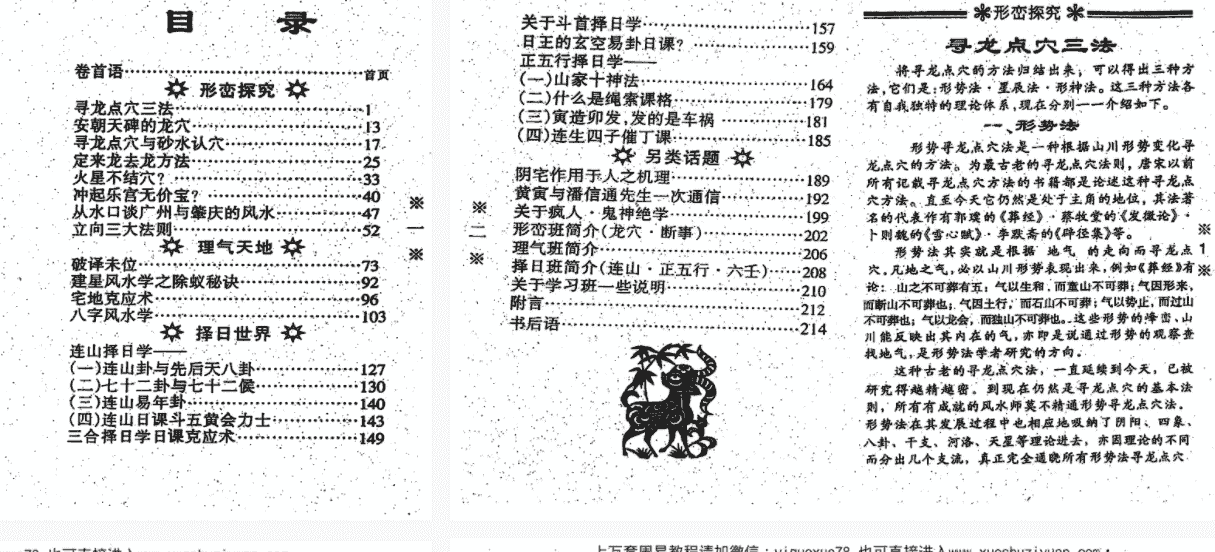 目 录
卷首语……首页
形峦探究
寻龙点穴三法……1
安朝天碑的龙穴……13
寻龙点穴与砂水认穴……17
定来龙去龙方法……25
火星不结穴?……33
冲起乐宫无价宝?……40
从水口谈广州与肇庆的风水……47
立向三大法则……52
理气天地
破译未位……73
建星风水学之除蚁秘诀……92
宅地克应术……96
八字风水学……103
择日世界
连山择日学——
(一)连山卦与先后天八卦……127
(二)七十二卦与七十二候……130
(三)连山易年卦……140
(四)连山日课斗五黄会力士……143
三合择日学日课克应术……149
※
一
※
关于斗首择日学……157
日王的玄空易卦日课?……159
正五行择日学——
(一)山家十神法……164
(二)什么是绳索课格……179
(三)寅造卯发,发的是车祸……181
(四)连生四子催丁课……185
另类话题
阴宅作用于人之机理……189
黄寅与潘信通先生一次通信……192
关于疯人·鬼神绝学……199
形峦班简介(龙穴·断事)……202
理气班简介……206
择日班简介(连山·正五行·六壬)……208
关于学习班一些说明……210
附言……212
书后语……214
※
二
※
※形峦探究※
寻龙点穴三法
将寻龙点穴的方法归结出来，可以得出三种方
法，它们是：形势法·星辰法·形神法。这三种方法各
有自我独特的理论体系，现在分别一一介绍如下。
一、形势法
形势寻龙点穴法是一种根据山川形势变化寻
龙点穴的方法。为最古老的寻龙点穴法则，唐宋以前
所有记载寻龙点穴方法的书籍都是论述这种寻龙点
穴方法。直至今天它仍然是处于主角的地位，其法著
名的代表作有郭璞的《葬经》·蔡牧堂的《发微论》·
卜则巍的《雪心赋》·李默斋的《辟径集》等。
形势法其实就是根据 地气 的走向而寻龙点
穴，凡地之气，必以山川形势表现出来，例如《葬经》有
论：山之不可葬有五：气以生和，而童山不可葬；气因形来，
而断山不可葬也；气因土行，而石山不可葬；气以势止，而过山
不可葬也；气以龙会，而独山不可葬也。这些形势的峰峦、山
川能反映出其内在的气，亦即是说通过形势的观察查
找地气，是形势法学者研究的方向。
这种古老的寻龙点穴法，一直延续到今天，已被
研究得越精越密。到现在仍然是寻龙点穴的基本法
则，所有有成就的风水师莫不精通形势寻龙点穴法。
形势法在其发展过程中也相应地吸纳了阴阳、四象、
八卦、干支、河洛、天星等理论进去，亦因理论的不同
而分出几个支流，真正完全通晓所有形势法寻龙点穴
※
1
※